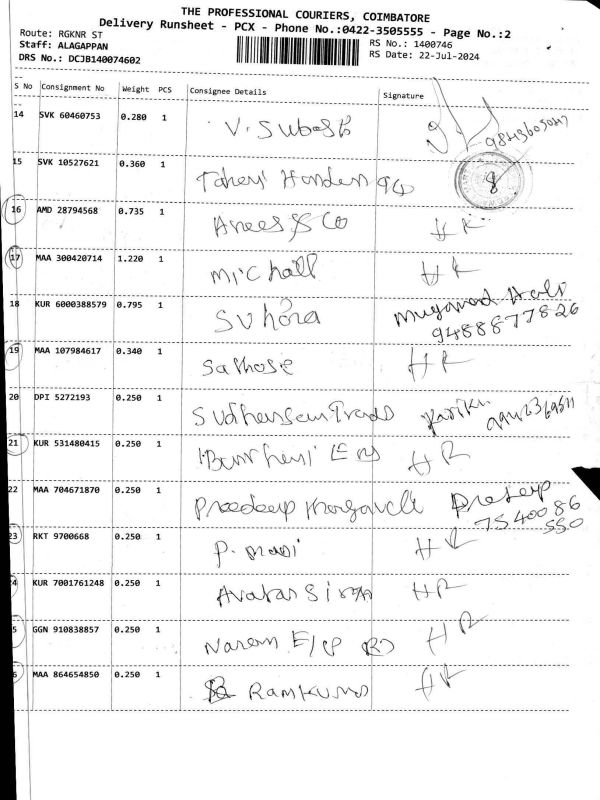 THE PROFESSIONAL COURIERS, COIMBATORE
Delivery Runsheet - PCX - Phone No.:0422-3505555 - Page No.:2
Route: RGKNR ST
Staff: ALAGAPPAN
DRS No.: DCJB140074602
RS No.: 1400746
RS Date: 22-Jul-2024
S No Consignment No Weight PCS Consignee Details Signature
14 SVK 60460753 0.280 1 V. Subash
15 SVK 10527621 0.360 1
16 AMD 28794568 0.735 1 Anees & Co HR
17 MAA 300420714 1.220 1 Michall HR
18 KUR 6000388579 0.795 1 Suhora
9488877826
19 MAA 107984617 0.340 1 Sathose HR
20 DPI 5272193 0.250 1
21 KUR 531480415 0.250 1 HR
22 MAA 704671870 0.250 1 Pradeep
75400 86
550
23 RKT 9700668 0.250 1 P. mani HR
4 KUR 7001761248 0.250 1 Avatar Singh HR
5 GGN 910838857 0.250 1 HR
6 MAA 864654850 0.250 1 Ramkumar HR